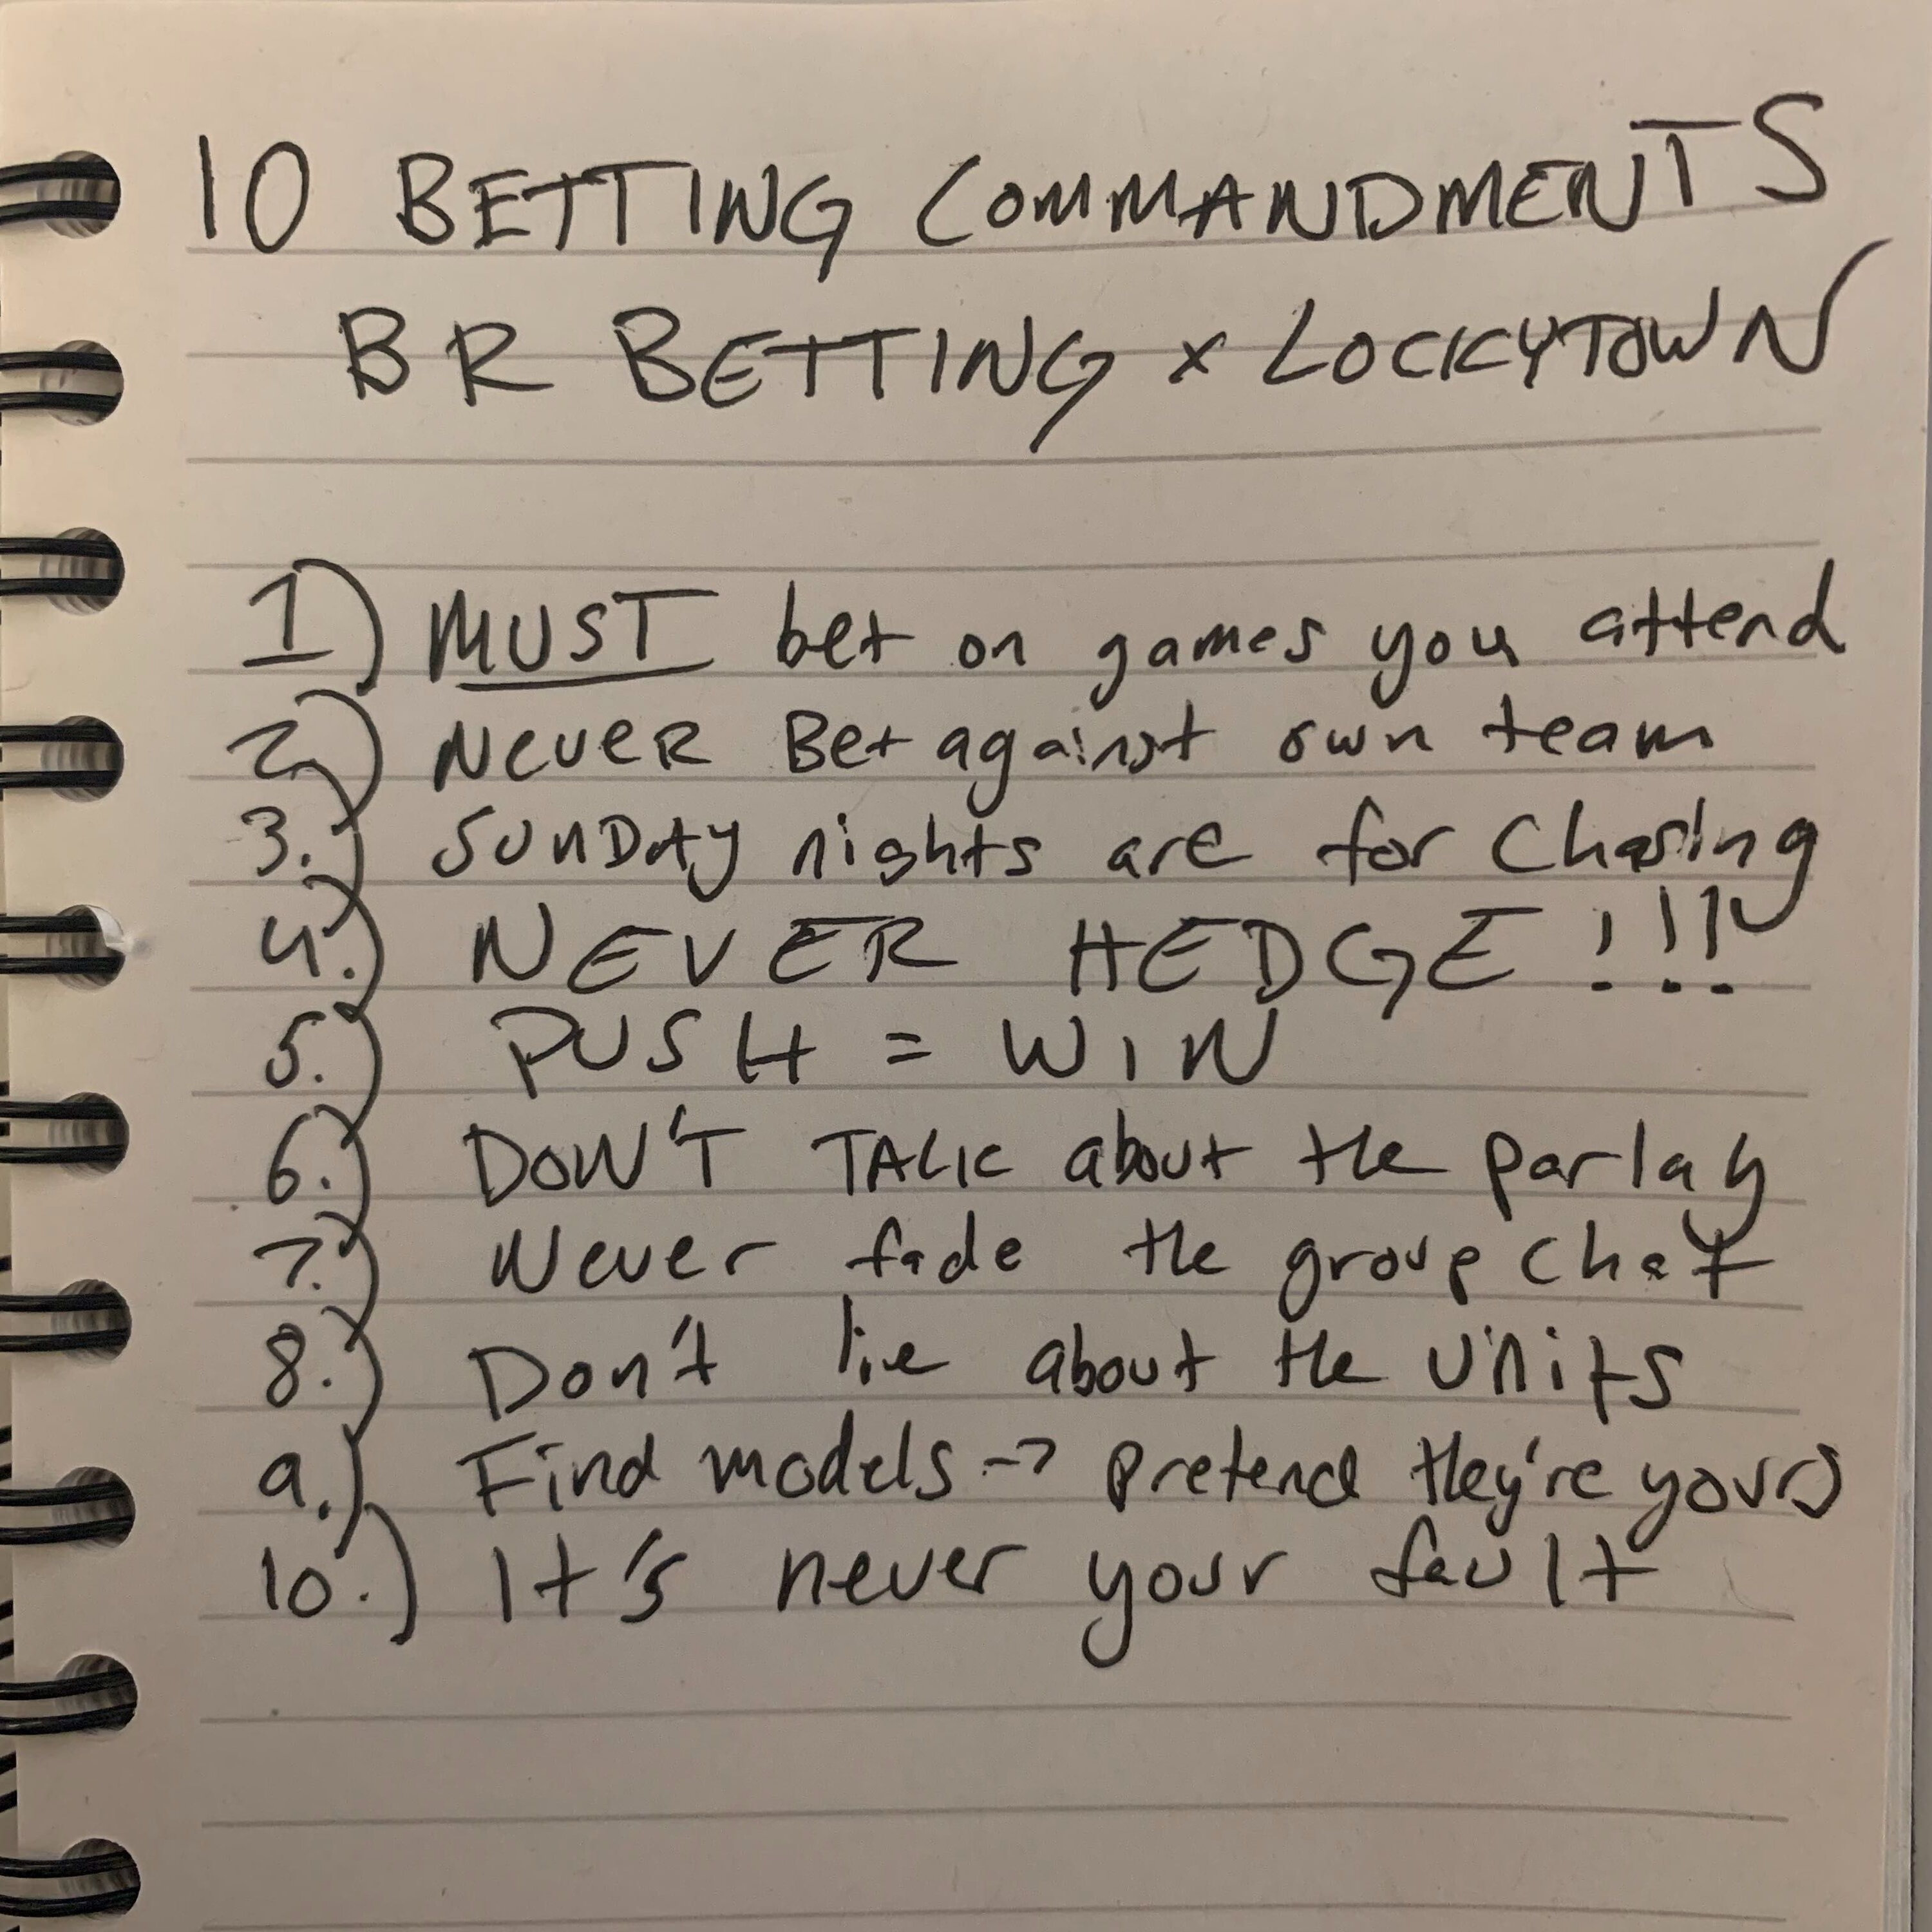 10 BETTING COMMANDMENTS
BR BETTING x LOCKYTOWN
1) MUST bet on games you attend
2) Never Bet against own team
3.) SUNDAY nights are for Chasing
4.) NEVER HEDGE!!!
5.) PUSH = WIN
6.) DON'T TALK about the parlay
7.) Never fade the group chat
8.) Don't lie about the units
9.) Find models -> pretend they're yours
10.) It's never your fault